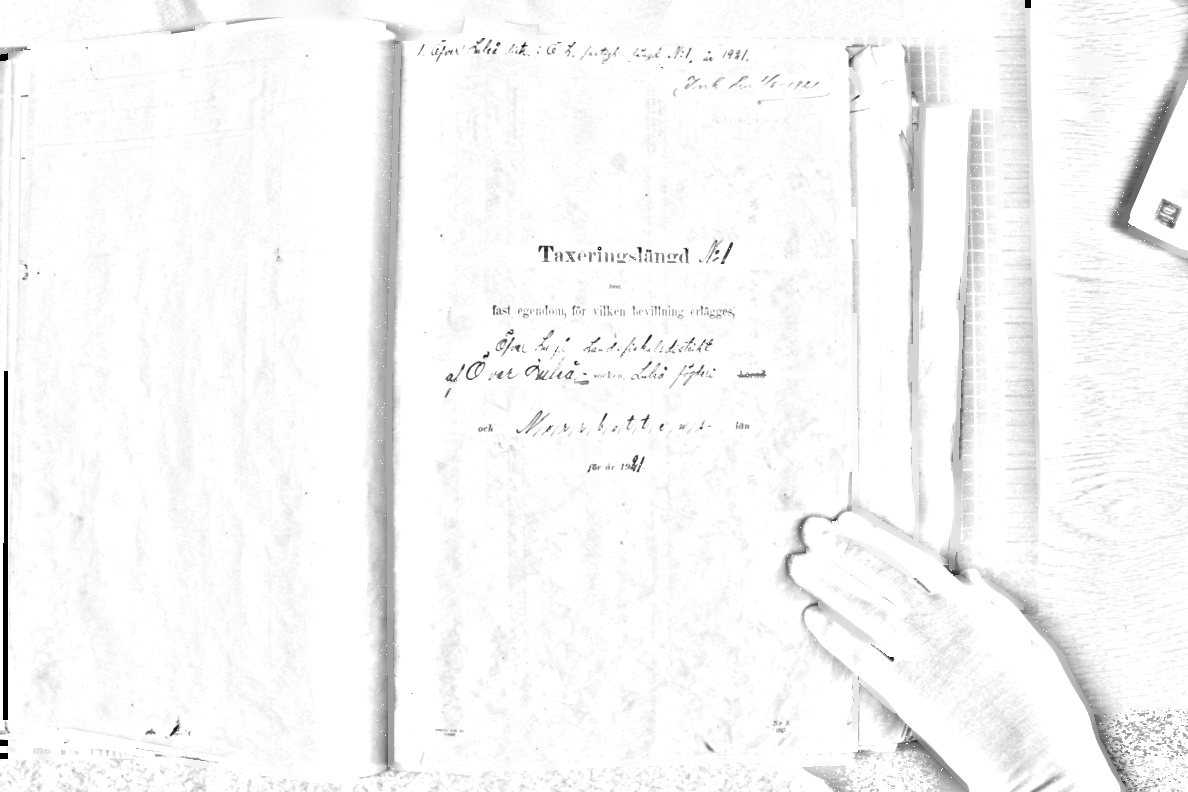 1. Öfver Luleå distr. : Ö. L. fastigh. längd N:1, år 1921.
Taxeringslängd N:1
över
fast egendom, för vilken bevillning erlägges,
Öfver Luleå Landsfiskalsdistrikt
af Över Luleå - socken, Luleå fögderi härad
och Norrbottens län
för år 1921.